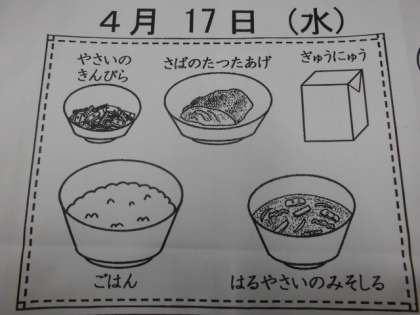 4月 17日 (水)
やさいの
きんぴら
さばのたつたあげ
ぎゅうにゅう
ごはん
はるやさいのみそしる